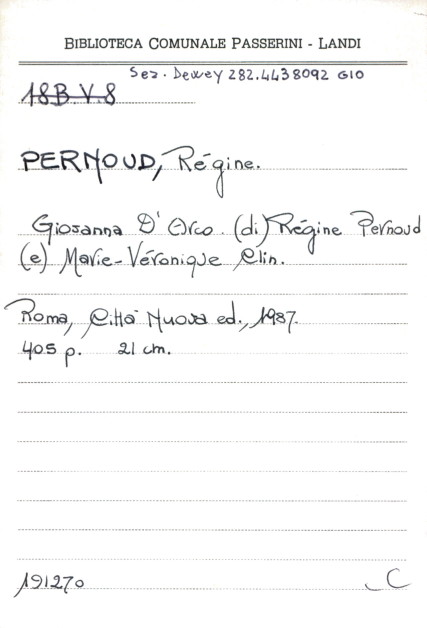 BIBLIOTECA COMUNALE PASSERINI - LANDI
Sez. Dewey 282.4438092 GIO
18B.V.8
PERNOUD, Régine.
Giovanna D'Arco. (di) Régine Pernoud
(e) Marie-Véronique Clin.
Roma, Città Nuova ed., 1987.
405 p. 21 cm.
191270 C